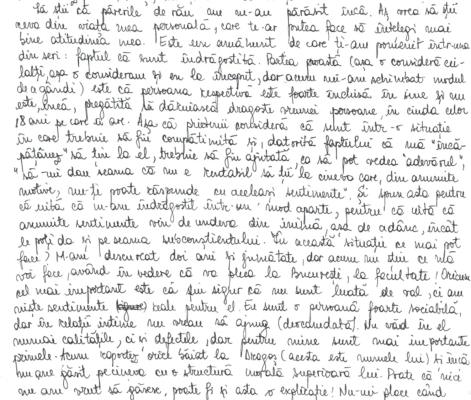 Să știi că părerile de rău nu m-au părăsit încă. Aș vrea să știi
ceva din viața mea personală, care te-ar putea face să înțelegi mai
bine atitudinea mea. Este un amănunt de care ți-am pomenit într-una
din seri: faptul că sunt îndrăgostită. Partea proastă (așa o consideră cei-
lalți, așa o consideram și eu la început, dar acum mi-am schimbat modul
de a gândi) este că persoana respectivă este foarte închisă în sine și nu
este, încă, pregătită să dăruiască dragoste vreunei persoane, în ciuda celor
18 ani pe care îi are. Așa că prietenii consideră că sunt într-o situație
în care trebuie să fiu compătimită și, datorită faptului că mă "încă-
pățânez" să țin la el, trebuie să fiu ajutată, ca să pot vedea "adevărul",
"să-mi dau seama că nu e rentabil să ții la cineva care, din anumite
motive, nu-ți poate răspunde cu aceleași sentimente". Și spun asta pentru
că uită că m-am îndrăgostit într-un mod aparte, pentru că uită că
anumite sentimente vin de undeva din inimă, așa de adânc, încât
le poți da și pe seama subconștientului. În această situație ce mai pot
face? M-am descurcat doi ani și jumătate, dar acum nu știu ce mă
voi face, având în vedere că va pleca la București, la facultate! Oricum
cel mai important este că fiu sigur că nu sunt luată de val, ci am
niște sentimente reale pentru el. Eu sunt o persoană foarte sociabilă,
dar în relații intime nu vreau să ajung (deocamdată). Nu văd în el
numai calitățile, ci și defectele, dar pentru mine sunt mai importante
primele. Acum raportez orice băiat la Dragoș (acesta este numele lui) și încă
nu am găsit pe cineva cu o structură morală superioară lui. Poate că nici
nu am vrut să găsesc, poate fi și asta o explicație! Nu-mi place când